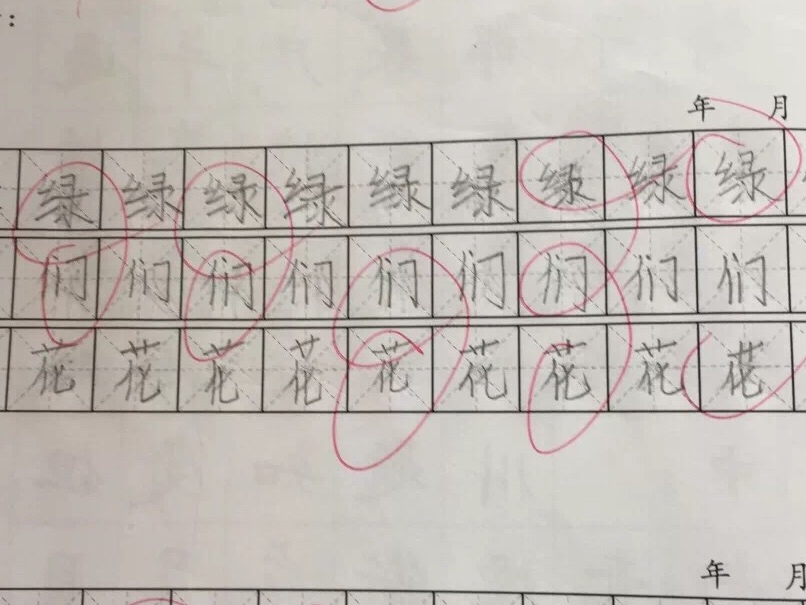 :
年 月
绿 绿 绿 绿 绿 绿 绿 绿 绿
们 们 们 们 们 们 们 们 们
花 花 花 花 花 花 花 花 花
年 月